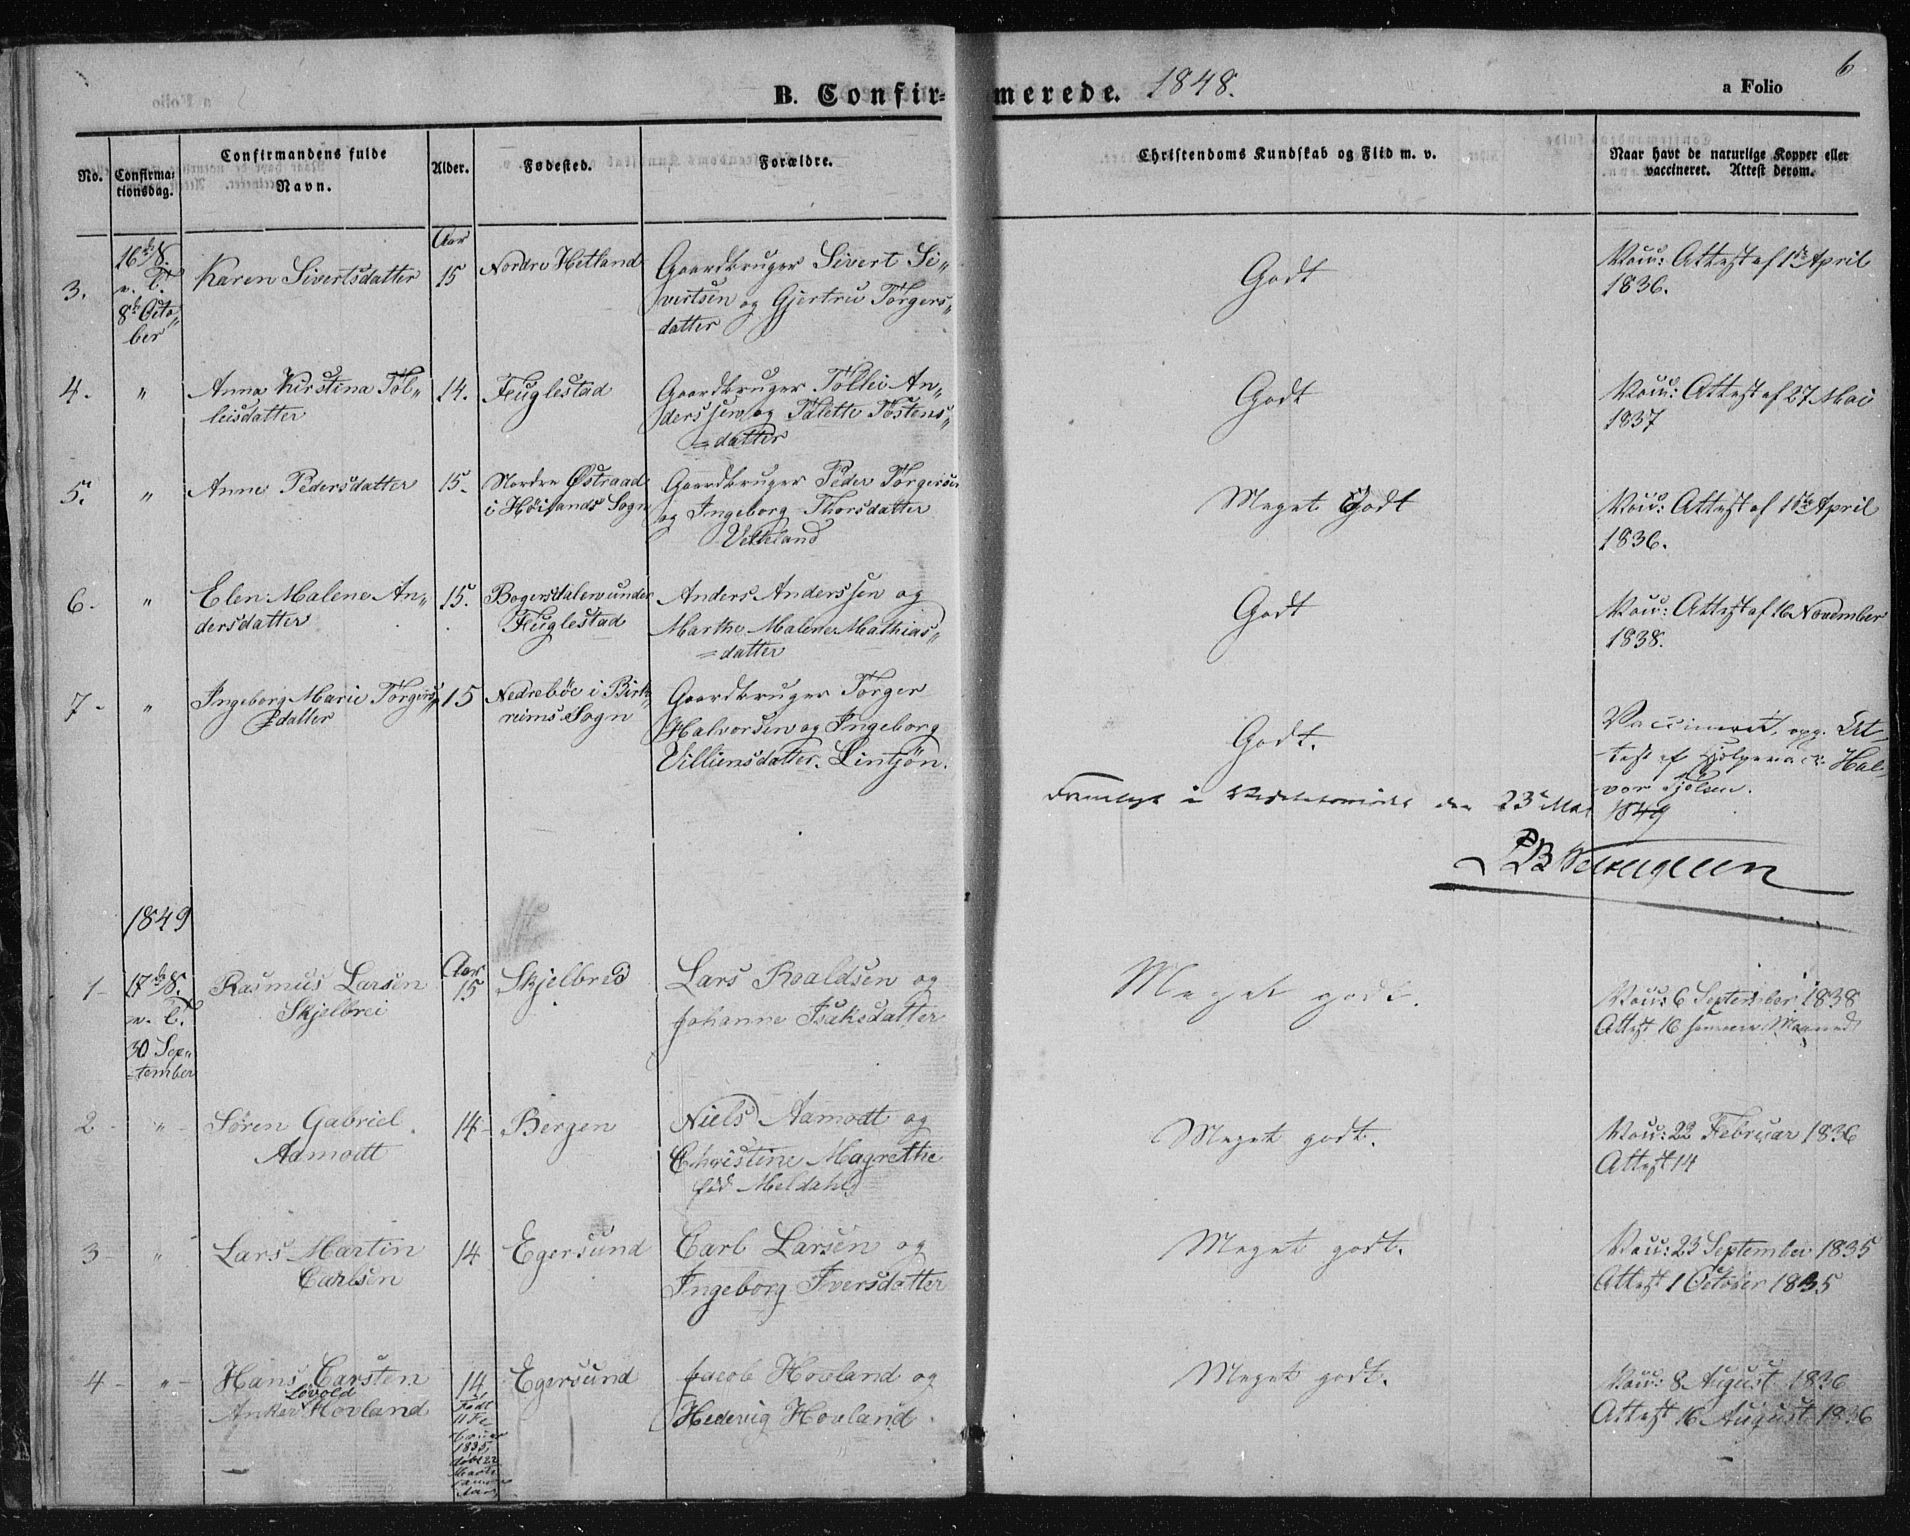 B. Confirmerede. 1848.
a Folio 6
No.
Confirmationsdag.
Confirmandens fulde Navn.
Alder.
Fødested.
Forældre.
Christendoms Kundskab og Flid m. v.
Naar havt de naturlige Kopper eller vaccineret. Attest derom.
3.
8de Octo„
ber
Karen Sivertsdatter
Aar
15
Nordre Hetland
Gaardbruger Sivert Si„
vertsen og Gjertru Torgers„
datter
Godt
Vacc: Attest af 1ste April
1836.
4. „
Anna Kirstina Tol„
leisdatter
14.
Fuglestad
Gaardbruger Tollei An„
derssen og Talette Tostens„
=datter
Godt
Vacc: Attest af 27 Mai
1837
5. „
Anne Pedersdatter
15.
Nordre Østraad
i Höilands Sogn
Gaardbruger Peder Torgersen
og Ingeborg Thorsdatter
Vetteland
Meget Godt
Vacc: Attest af 1ste April
1836.
6. „
Elen Malene An„
dersdatter
15.
under
Fuglestad
Anders Anderssen og
Marthe Malene Mathias„
=datter
Godt
Vacc: Attest af 16 November
1838.
7 - „
Ingeborg Marie Torgers„
datter
15
Nedrebøe i Birk„
reims Sogn
Gaardbruger Torger
Halvorsen og Ingeborg
Godt.
Vaccineret, opg. At„
test af Hjelpevacc. Hal„
vor
den 23 Mai 1849
1849
1 -
30 Sep„
=tember
Rasmus Larsen
Skjelbrei
Aar
15
Skjelbred
Lars Roaldsen og
Johanne Isaksdatter
Meget godt.
Vacc: 6 September 1838
Attest 16 samme Maaned
2 - „
Søren Gabriel
Aamodt
14
Bergen
Niels Aamodt og
Christine Magrethe
fød Meldahl
Meget godt.
Vacc: 22 Februar 1836
Attest 14
3 - „
Lars Martin
Carlsen
14
Egersund
Carl Larsen og
Ingeborg Iversdatter
Meget godt.
Vacc: 23 September 1835
Attest 1 October 1835
4 - „
Hans Carsten
Løvold
Anker Hovland
14
Født
11 Fe
bruar
1835,
døbt 22
Marts
samme
Aar
Egersund
Jacob Hovland og
Hedevig Hovland
Meget godt.
Vacc: 8 August 1836
Attest 16 August 1836